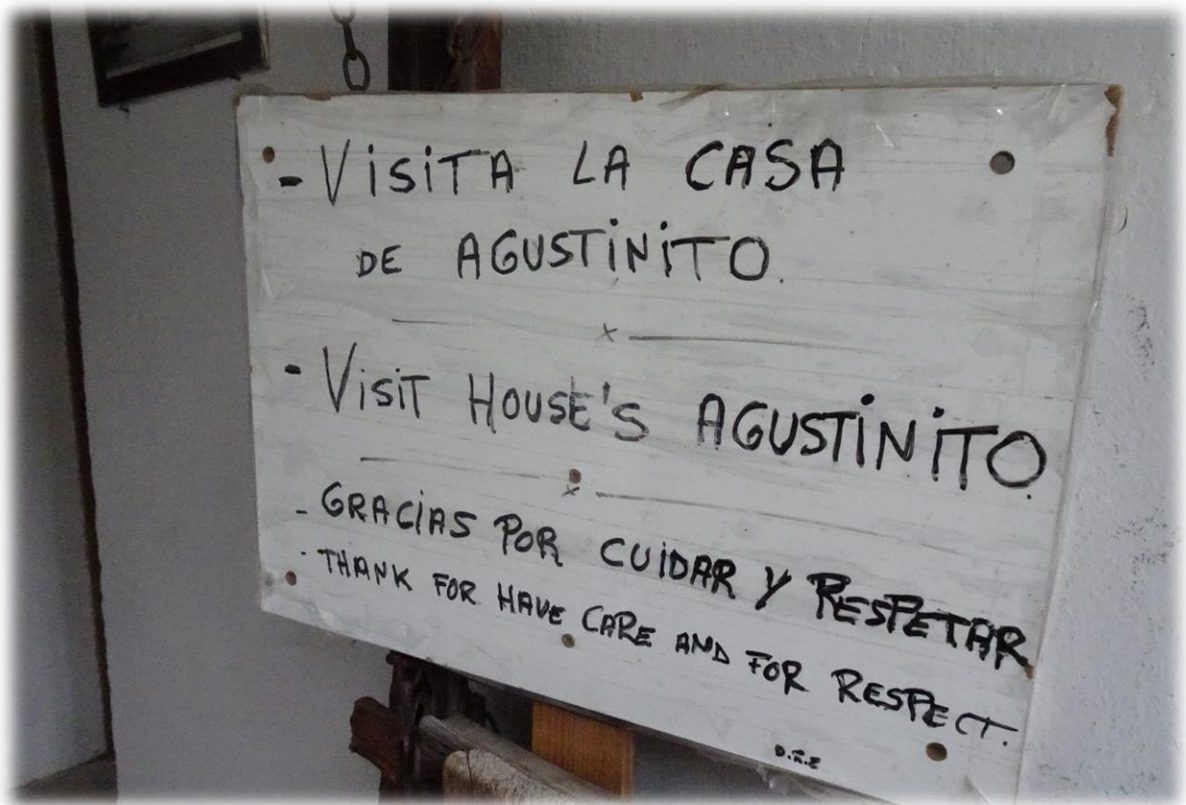 - VISITA LA CASA
DE AGUSTINITO.
- VISIT HOUSE'S AGUSTINITO.
- GRACIAS POR CUIDAR Y RESPETAR
- THANK FOR HAVE CARE AND FOR RESPECT.